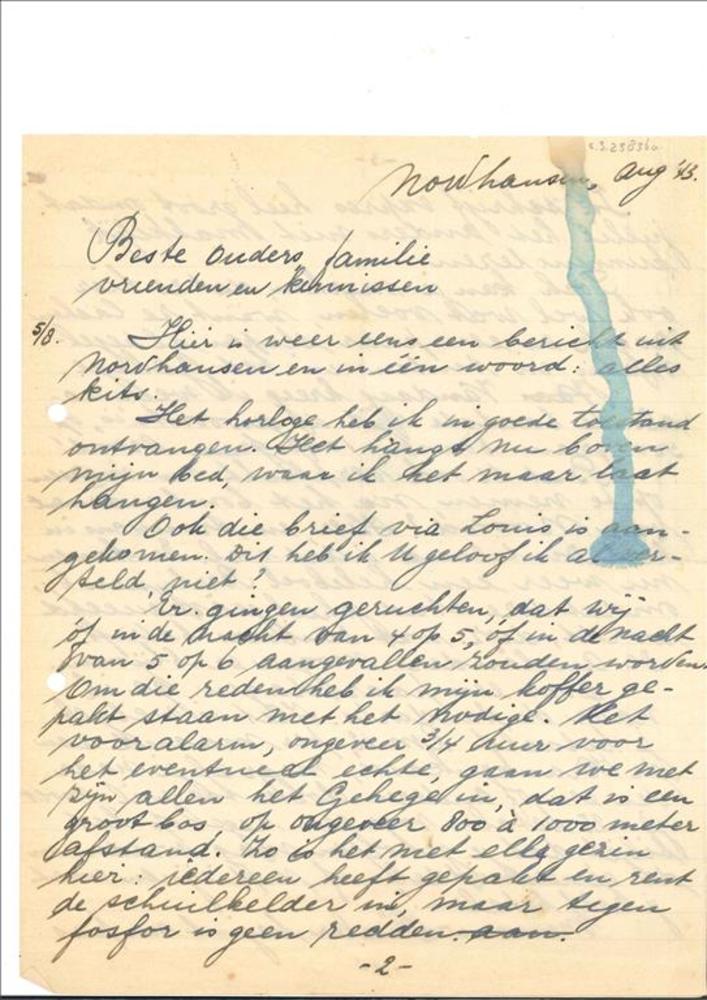 Nordhausen, Aug '43.
Beste Ouders, familie
vrienden en kennissen
5/8. Hier is weer eens een bericht uit
Nordhausen en in één woord: alles
kits.
Het horloge heb ik in goede toestand
ontvangen. Het hangt nu boven
mijn bed, waar ik het maar laat
hangen.
Ook die brief via Louis is aan-
gekomen. Dit heb ik U geloof ik al ver-
teld, niet?
Er gingen geruchten, dat wij
óf in de nacht van 4 op 5, óf in de nacht
van 5 op 6 aangevallen zouden worden.
Om die reden heb ik mijn koffer ge-
pakt staan met het nodige. Het
vooralarm, ongeveer 3/4 uur voor
het eventueel echte, gaan we met
zijn allen het Gehege in, dat is een
groot bos, op ongeveer 800 à 1000 meter
afstand. Zo is het met elk gezin
hier: iedereen heeft gepakt en rent
de schuilkelder in, maar tegen
fosfor is geen redden. aan.
-2-